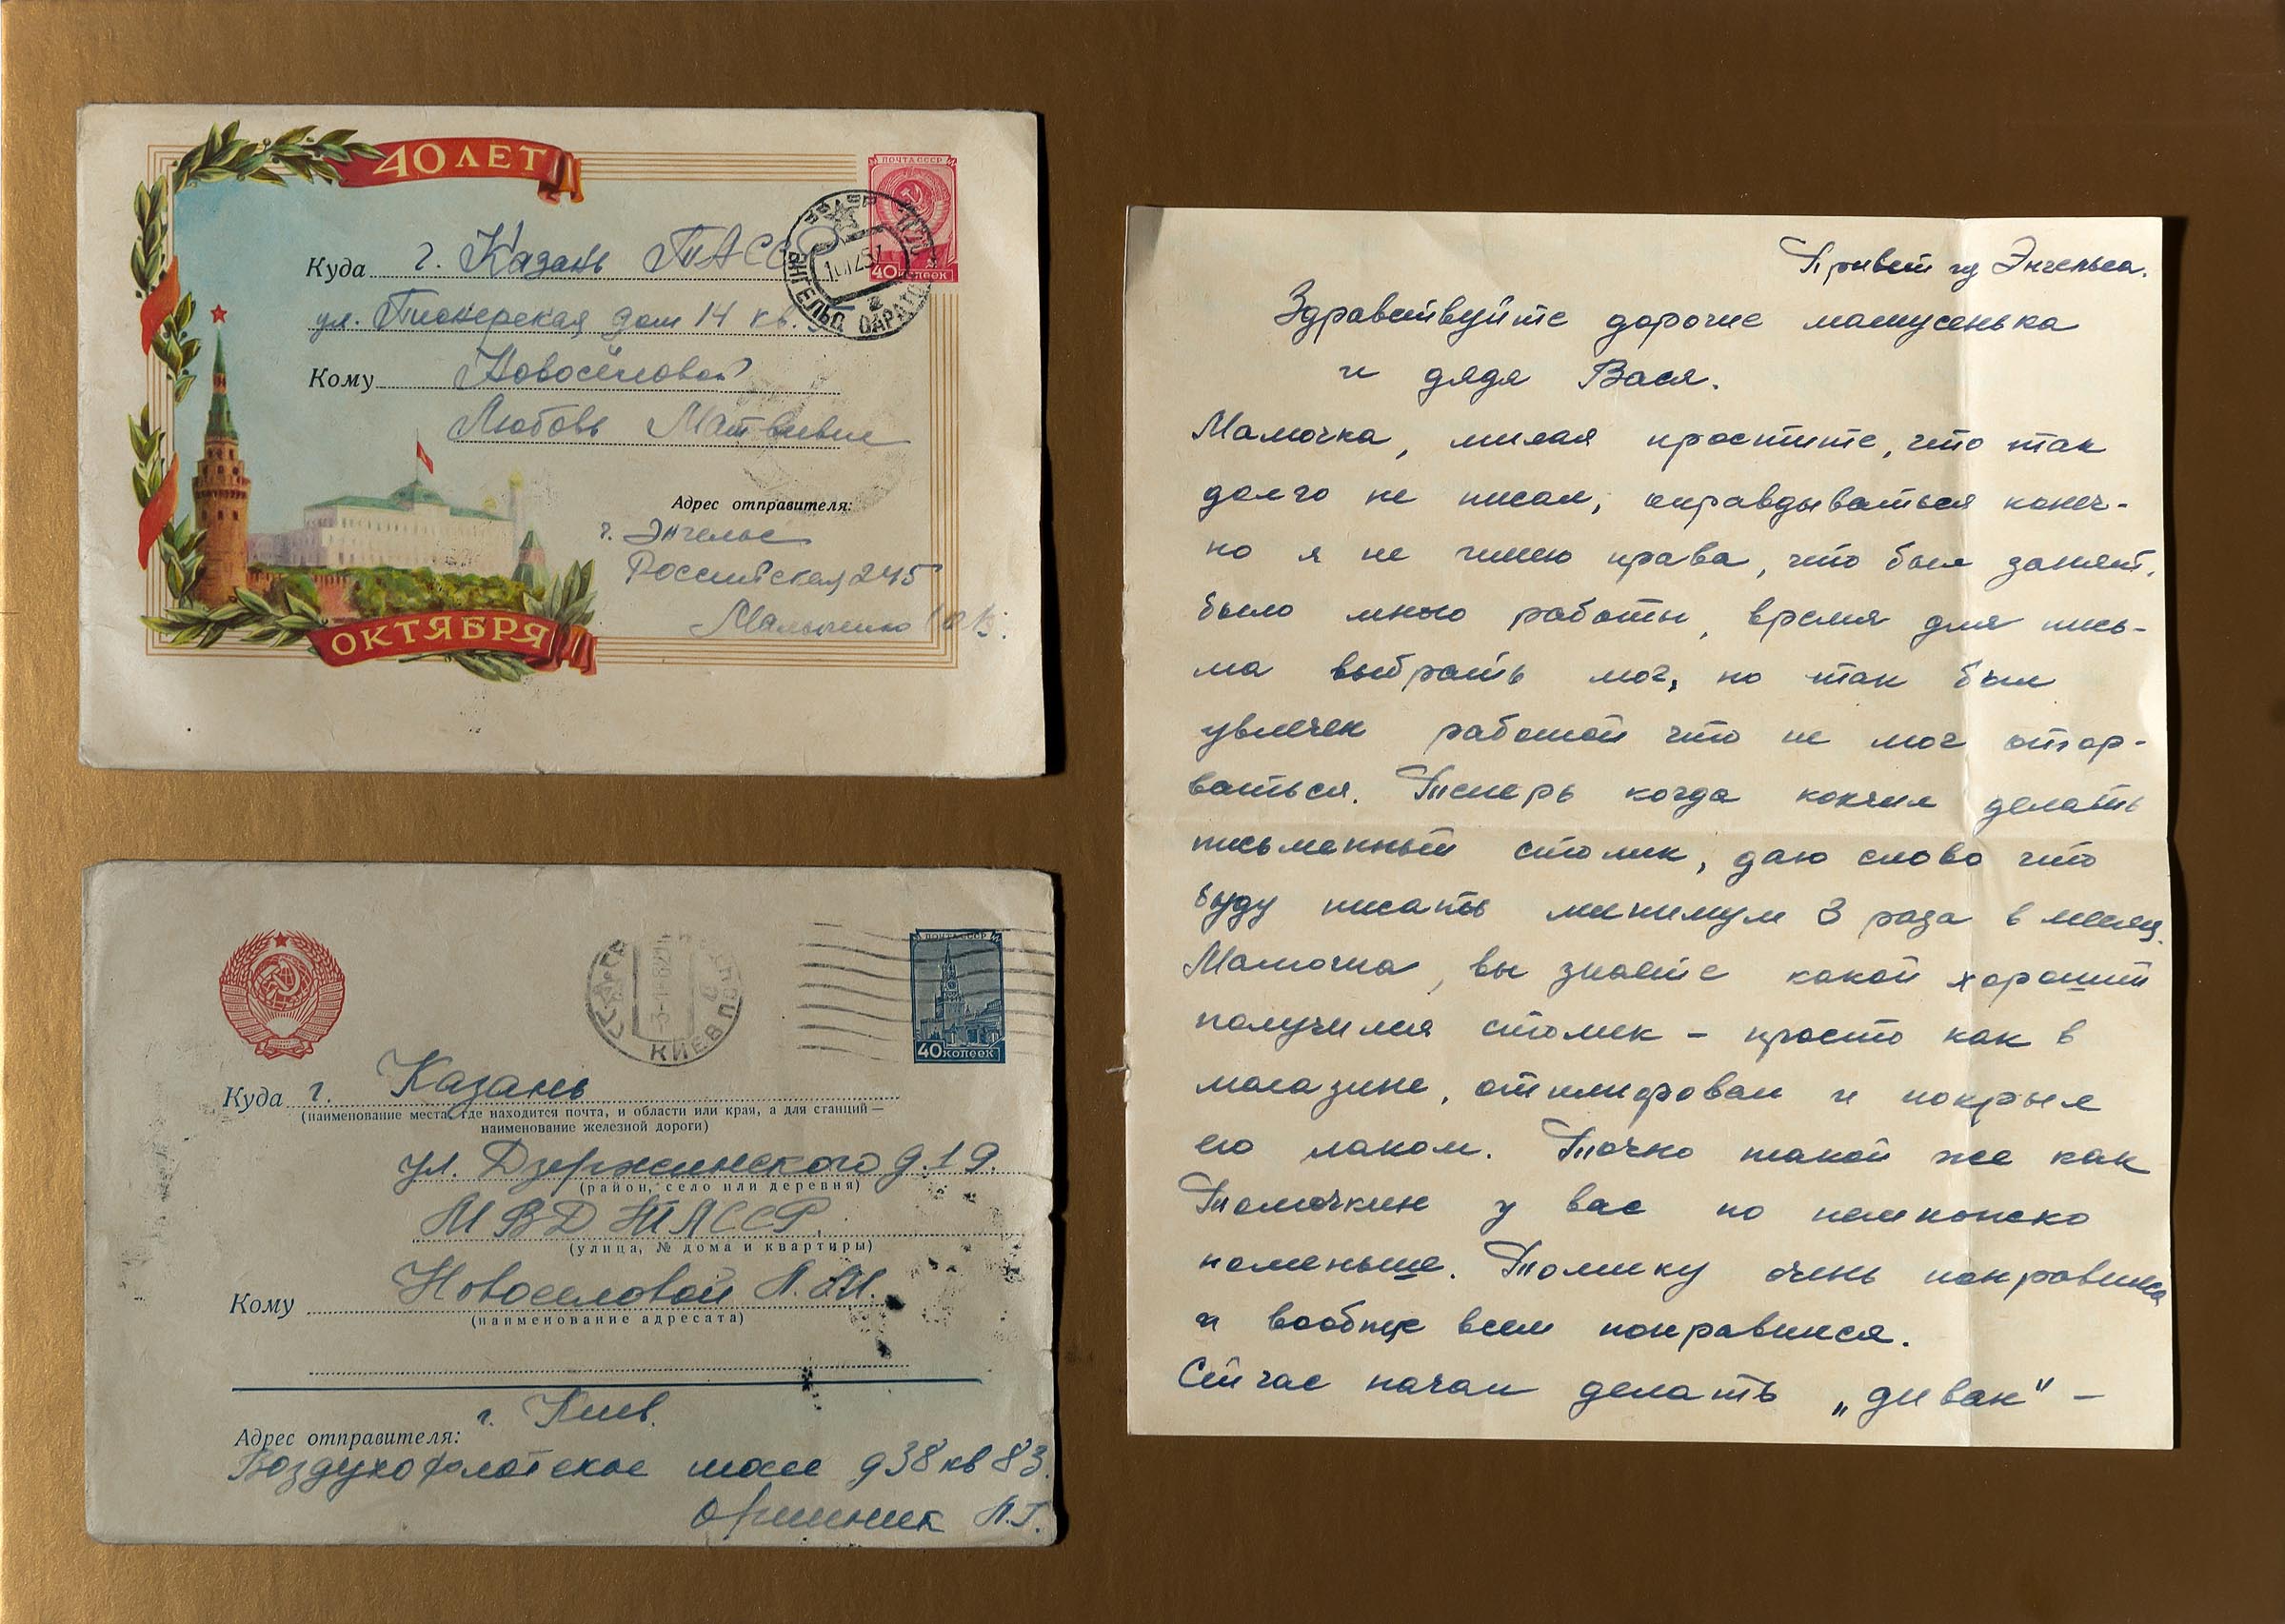 40 ЛЕТ
ПОЧТА СССР
40 копеек
ЭНГЕЛЬС САРАТ
Куда г. Казань ТАССР
ул. Пионерская дом 14 кв. 5
Кому Новосёловой
Любовь Матвевне
Адрес отправителя:
г. Энгельс
Росситская 245
ОКТЯБРЯ
ПОЧТА СССР
40 копеек
КИЕВ
Куда г. Казань
(наименование места, где находится почта, и области или края, а для станций —
наименование железной дороги)
ул. Дзержинского д. 19.
(район, село или деревня)
МВД ТАССР.
(улица, № дома и квартиры)
Кому Новоселовой Л. М.
(наименование адресата)
г. Киев.
Адрес отправителя:
Воздухофлотское шосе д 38 кв 83.
Л. Г.
Привет из Энгельса.
Здравствуйте дорогие мамусенька
и дядя Вася.
Мамочка, милая простите, что так
долго не писал, оправдываться конеч-
но я не имею права, что был занят,
было много работы, время для пись-
ма выбрать мог, но так был
увлечен работой что не мог отор-
ваться. Теперь когда кончил делать
письменный столик, даю слово что
буду писать минимум 3 раза в месяц.
Мамочка, вы знаете какой хороший
получился столик – просто как в
магазине, отшлифовал и покрыл
его лаком. Точно такой же как
Томочкин у вас но немножко
поменьше. Томику очень понравился
и вообще всем понравился.
Сейчас начал делать „диван" –